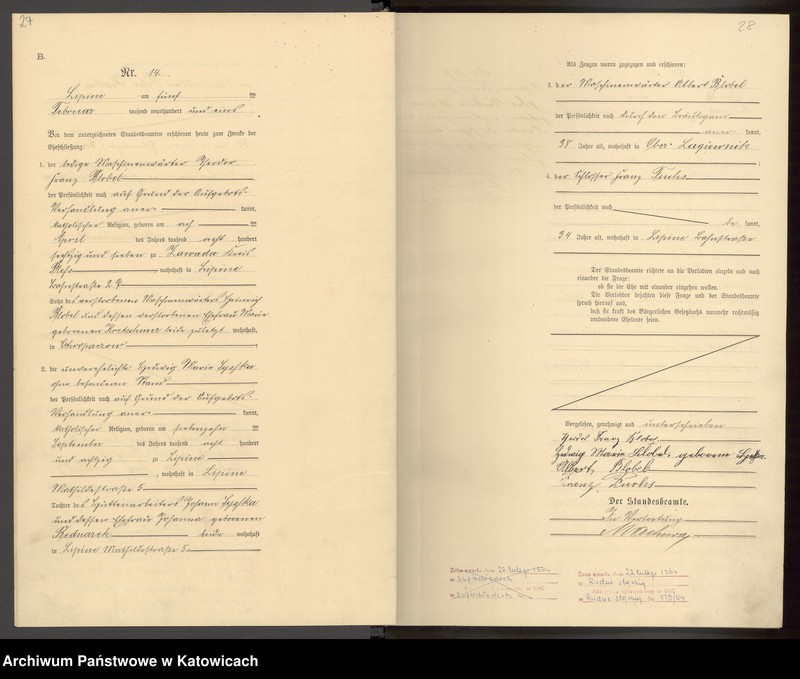 27
B.
Nr. 14.
Lipine am fünf ten
Februar tausend neunhundert und eins
Vor dem unterzeichneten Standesbeamten erschienen heute zum Zwecke der
Eheschließung:
1. der ledige Maschinenwärter Theodor
Franz Klobel
der Persönlichkeit nach auf Grund der Aufgebots-
Verhandlung aner- kannt,
katholischer Religion, geboren am ach ten
April des Jahres tausend acht hundert
sechzig und sieben zu Zawada Kreis
, wohnhaft in Lipine
Bahnstraße
Sohn des verstorbenen Maschinenwärters Heinrich
Klobel und dessen verstorbenen Ehefrau Marie
geborenen Kretschmer beide zuletzt wohnhaft,
in
2. die unverehelichte Hedwig Marie
ohne besonderen Stand
der Persönlichkeit nach auf Grund der Aufgebots-
Verhandlung aner- kannt,
katholischer Religion, geboren am siebenzehn ten
September des Jahres tausend acht hundert
und achtzig zu Lipine
, wohnhaft in Lipine
Mathildestraße 5
Tochter des Hüttenarbeiters Johann
und dessen Ehefrau Johanna geborenen
Bednarek beide wohnhaft
in Lipine Mathildestraße 5
28
Als Zeugen waren zugezogen und erschienen:
3. der Maschinenwärter Albert Klobel
der Persönlichkeit nach durch den Bräutigam
aner kannt,
38 Jahre alt, wohnhaft in Ober-Lagiewnik
;
4. der Schlosser Franz
der Persönlichkeit nach
be kannt,
34 Jahre alt, wohnhaft in Lipine Bahnstraße
Der Standesbeamte richtete an die Verlobten einzeln und nach
einander die Frage:
ob sie die Ehe mit einander eingehen wollen.
Die Verlobten bejahten diese Frage und der Standesbeamte
sprach hierauf aus,
daß sie kraft des Bürgerlichen Gesetzbuchs nunmehr rechtmäßig
verbundene Eheleute seien.
Vorgelesen, genehmigt und unterschrieben
Theodor Franz Klobel
Hedwig Marie Klobel, geborene
Albert Klobel
Franz
Der Standesbeamte.
In Vertretung
Zmarł dnia 22 lutego 1964
w
Zmarł dnia 22 lutego 1964
w Ruda Śląska
w Ruda Śląska Nr
Archiwum Państwowe w Katowicach